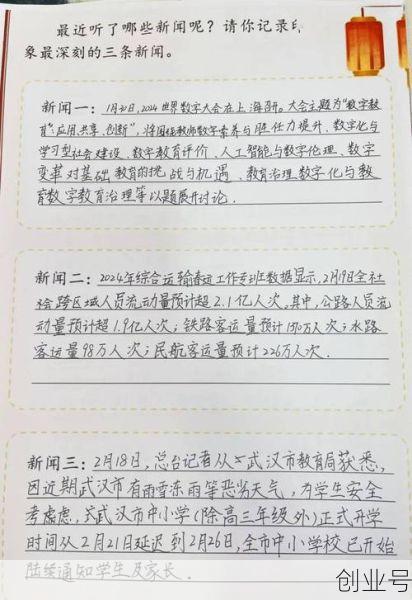 最近听了哪些新闻呢？请你记录
象最深刻的三条新闻。
新闻一：1月30日,2024世界数字大会在上海召开。大会主题为“数字教
育”:应用、共享、创新”，将围绕教师数字素养与胜任力提升、数字化与
学习型社会建设、数字教育评价、人工智能与数字伦理、数字
变革对基础教育的挑战与机遇、教育治理数字化与教
育数字教育治理等以题展开讨论.
新闻二：2024年综合运输春运工作专班数据显示,2月19日全社
会跨区域人员流动量预计超2.1亿人次。其中,公路人员流
动量预计超1.9亿人次;铁路客运量预计万人次;水路
客运量98万人次;民航客运量预计226万人次.
新闻三：2月18日,总台记者从武汉市教育局获悉,
因近期武汉市有雨雪冻雨等恶劣天气,为学生安全
考虑虑,武汉市中小学(除高三年级外)正式开学
时间从2月21日延迟到2月26日,全市中小学校已开始
陆续通知学生及家长.
创业号